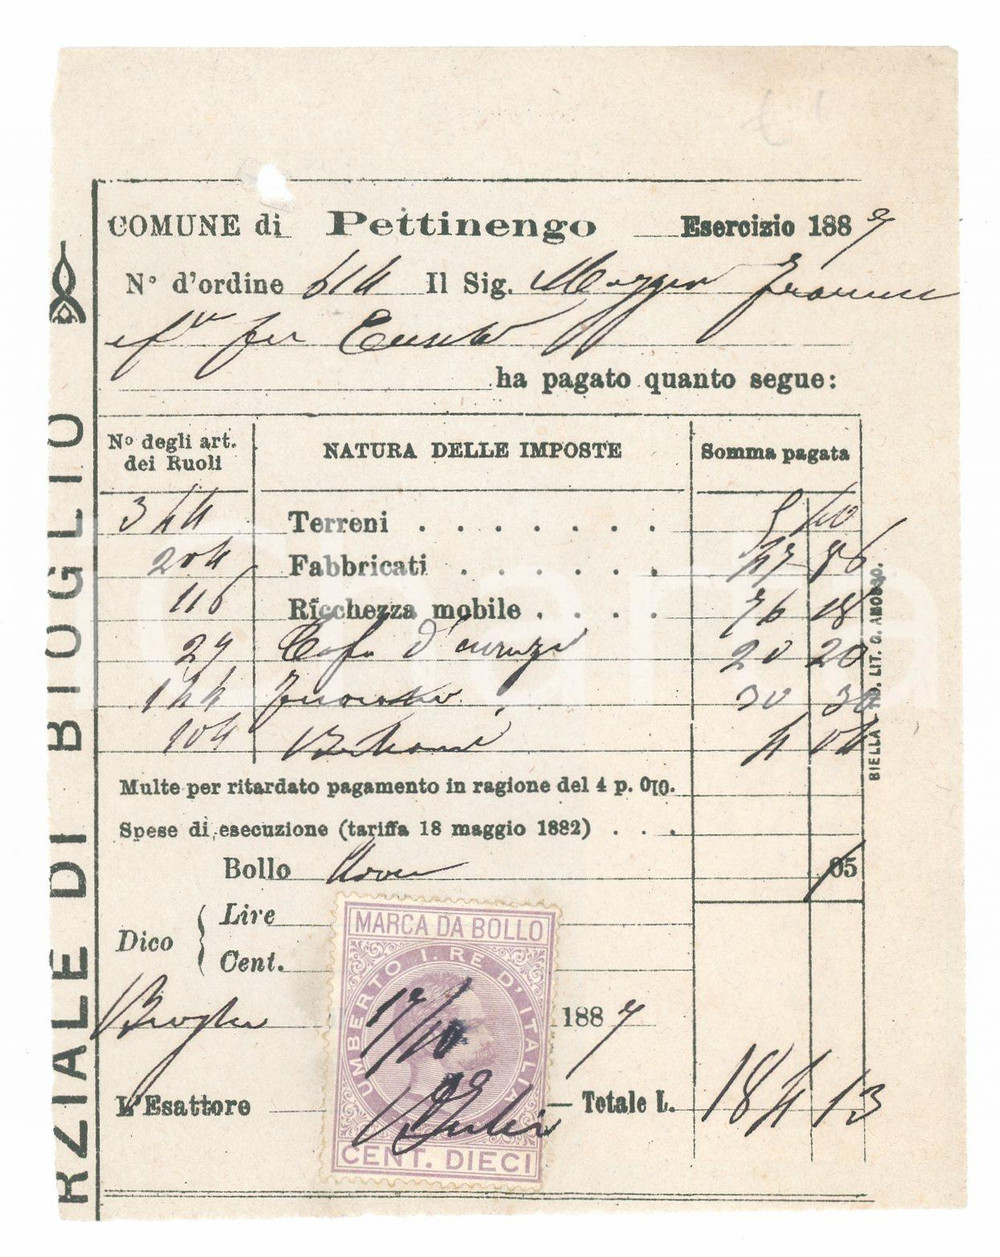 COMUNE di Pettinengo Esercizio 1887
N° d'ordine 614 Il Sig.
fu
ha pagato quanto segue:
N° degli art. dei Ruoli NATURA DELLE IMPOSTE Somma pagata
344 Terreni . . . . . . . 5 40
204 Fabbricati . . . . . . 47 86
116 Ricchezza mobile . . . . 76 18
29 20 20
144 30 30
104 4 04
Multe per ritardato pagamento in ragione del 4 p. 0/0.
Spese di esecuzione (tariffa 18 maggio 1882) . . .
Bollo 05
Dico { Lire
Cent.
Bioglio 17/10 1887
L'Esattore Totale L. 184 13
MARCA DA BOLLO
UMBERTO I. RE D'ITALIA
CENT. DIECI
RZIALE DI BIOGLIO
BIELLA LIT. G. AMOSSO.